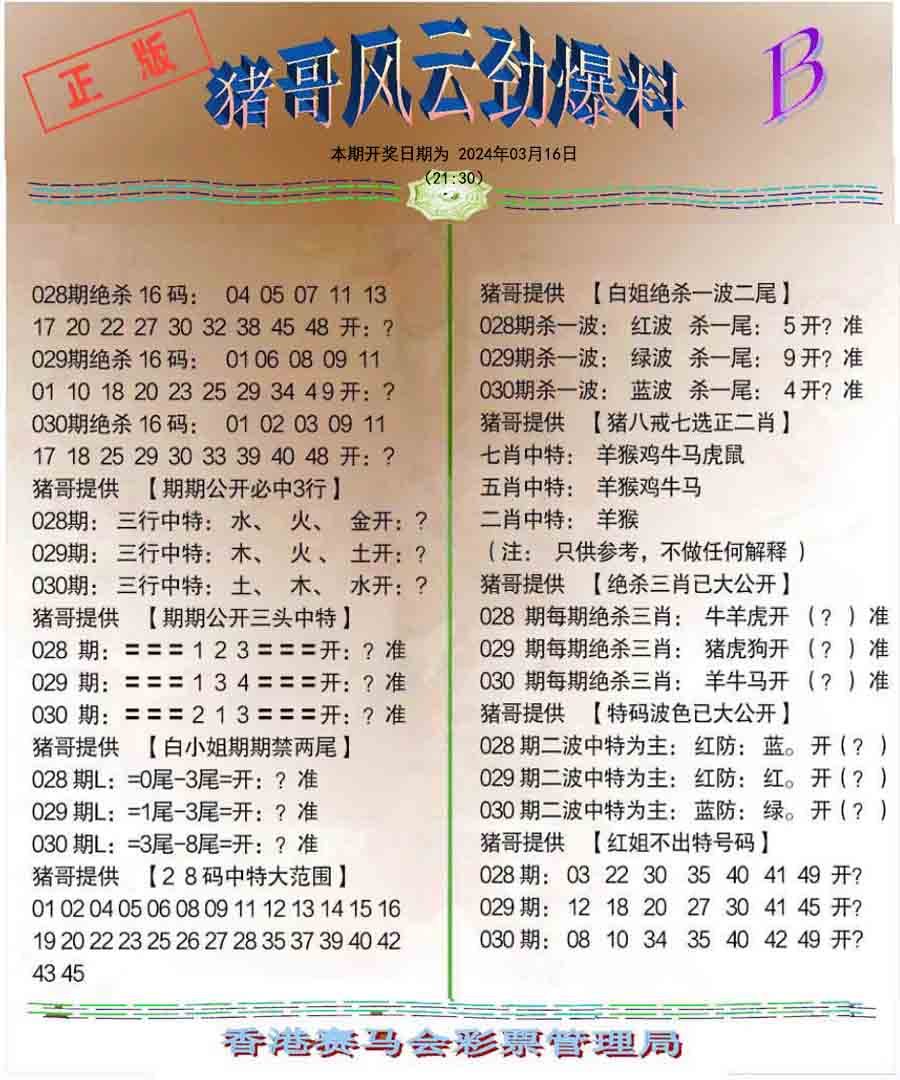 正版
猪哥风云劲爆料
B
本期开奖日期为 2024年03月16日
(21:30)
028期绝杀 16 码： 04 05 07 11 13
17 20 22 27 30 32 38 45 48 开：？
029期绝杀 16 码： 01 06 08 09 11
01 10 18 20 23 25 29 34 49 开：？
030期绝杀 16 码： 01 02 03 09 11
17 18 25 29 30 33 39 40 48 开：？
猪哥提供 【期期公开必中3行】
028期： 三行中特： 水、 火、 金开：？
029期： 三行中特： 木、 火、 土开：？
030期： 三行中特： 土、 木、 水开：？
猪哥提供 【期期公开三头中特】
028 期：=== 1 2 3 ===开：？准
029 期：=== 1 3 4 ===开：？准
030 期：=== 2 1 3 ===开：？准
猪哥提供 【白小姐期期禁两尾】
028 期L：=0尾-3尾=开：？准
029 期L：=1尾-3尾=开：？准
030 期L：=3尾-8尾=开：？准
猪哥提供 【2 8 码中特大范围】
01 02 04 05 06 08 09 11 12 13 14 15 16
19 20 22 23 25 26 27 28 35 37 39 40 42
43 45
猪哥提供 【白姐绝杀一波二尾】
028期杀一波： 红波 杀一尾： 5 开？准
029期杀一波： 绿波 杀一尾： 9 开？准
030期杀一波： 蓝波 杀一尾： 4 开？准
猪哥提供 【猪八戒七选正二肖】
七肖中特： 羊猴鸡牛马虎鼠
五肖中特： 羊猴鸡牛马
二肖中特： 羊猴
（注： 只供参考，不做任何解释）
猪哥提供 【绝杀三肖已大公开】
028 期每期绝杀三肖： 牛羊虎开 （？）准
029 期每期绝杀三肖： 猪虎狗开 （？）准
030 期每期绝杀三肖： 羊牛马开 （？）准
猪哥提供 【特码波色已大公开】
028 期二波中特为主： 红防： 蓝。 开（？）
029 期二波中特为主： 红防： 红。 开（？）
030 期二波中特为主： 蓝防： 绿。 开（？）
猪哥提供 【红姐不出特号码】
028 期： 03 22 30 35 40 41 49 开？
029 期： 12 18 20 27 30 41 45 开？
030 期： 08 10 34 35 40 42 49 开？
香港赛马会彩票管理局